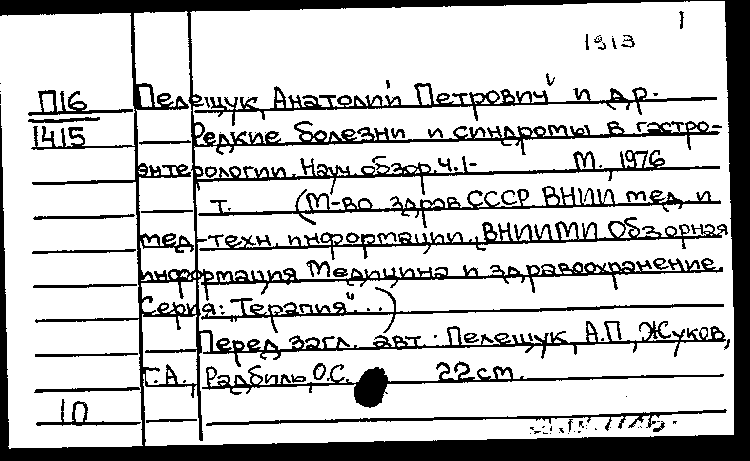 1
1913
П16 Пелещук, Анатолий Петрович и др.
1415 Редкие болезни и синдромы в гастро-
энтерологии. Науч. обзор. Ч.1- М., 1976
т. (М-во здрав СССР ВНИИ мед. и
мед.-техн. информации. ВНИИМИ Обзорная
информация Медицина и здравоохранение.
Серия: "Терапия"...)
Перед загл. авт.: Пелещук, А.П., Жуков,
Г.А., Радбиль, О.С. 22 cm.
10